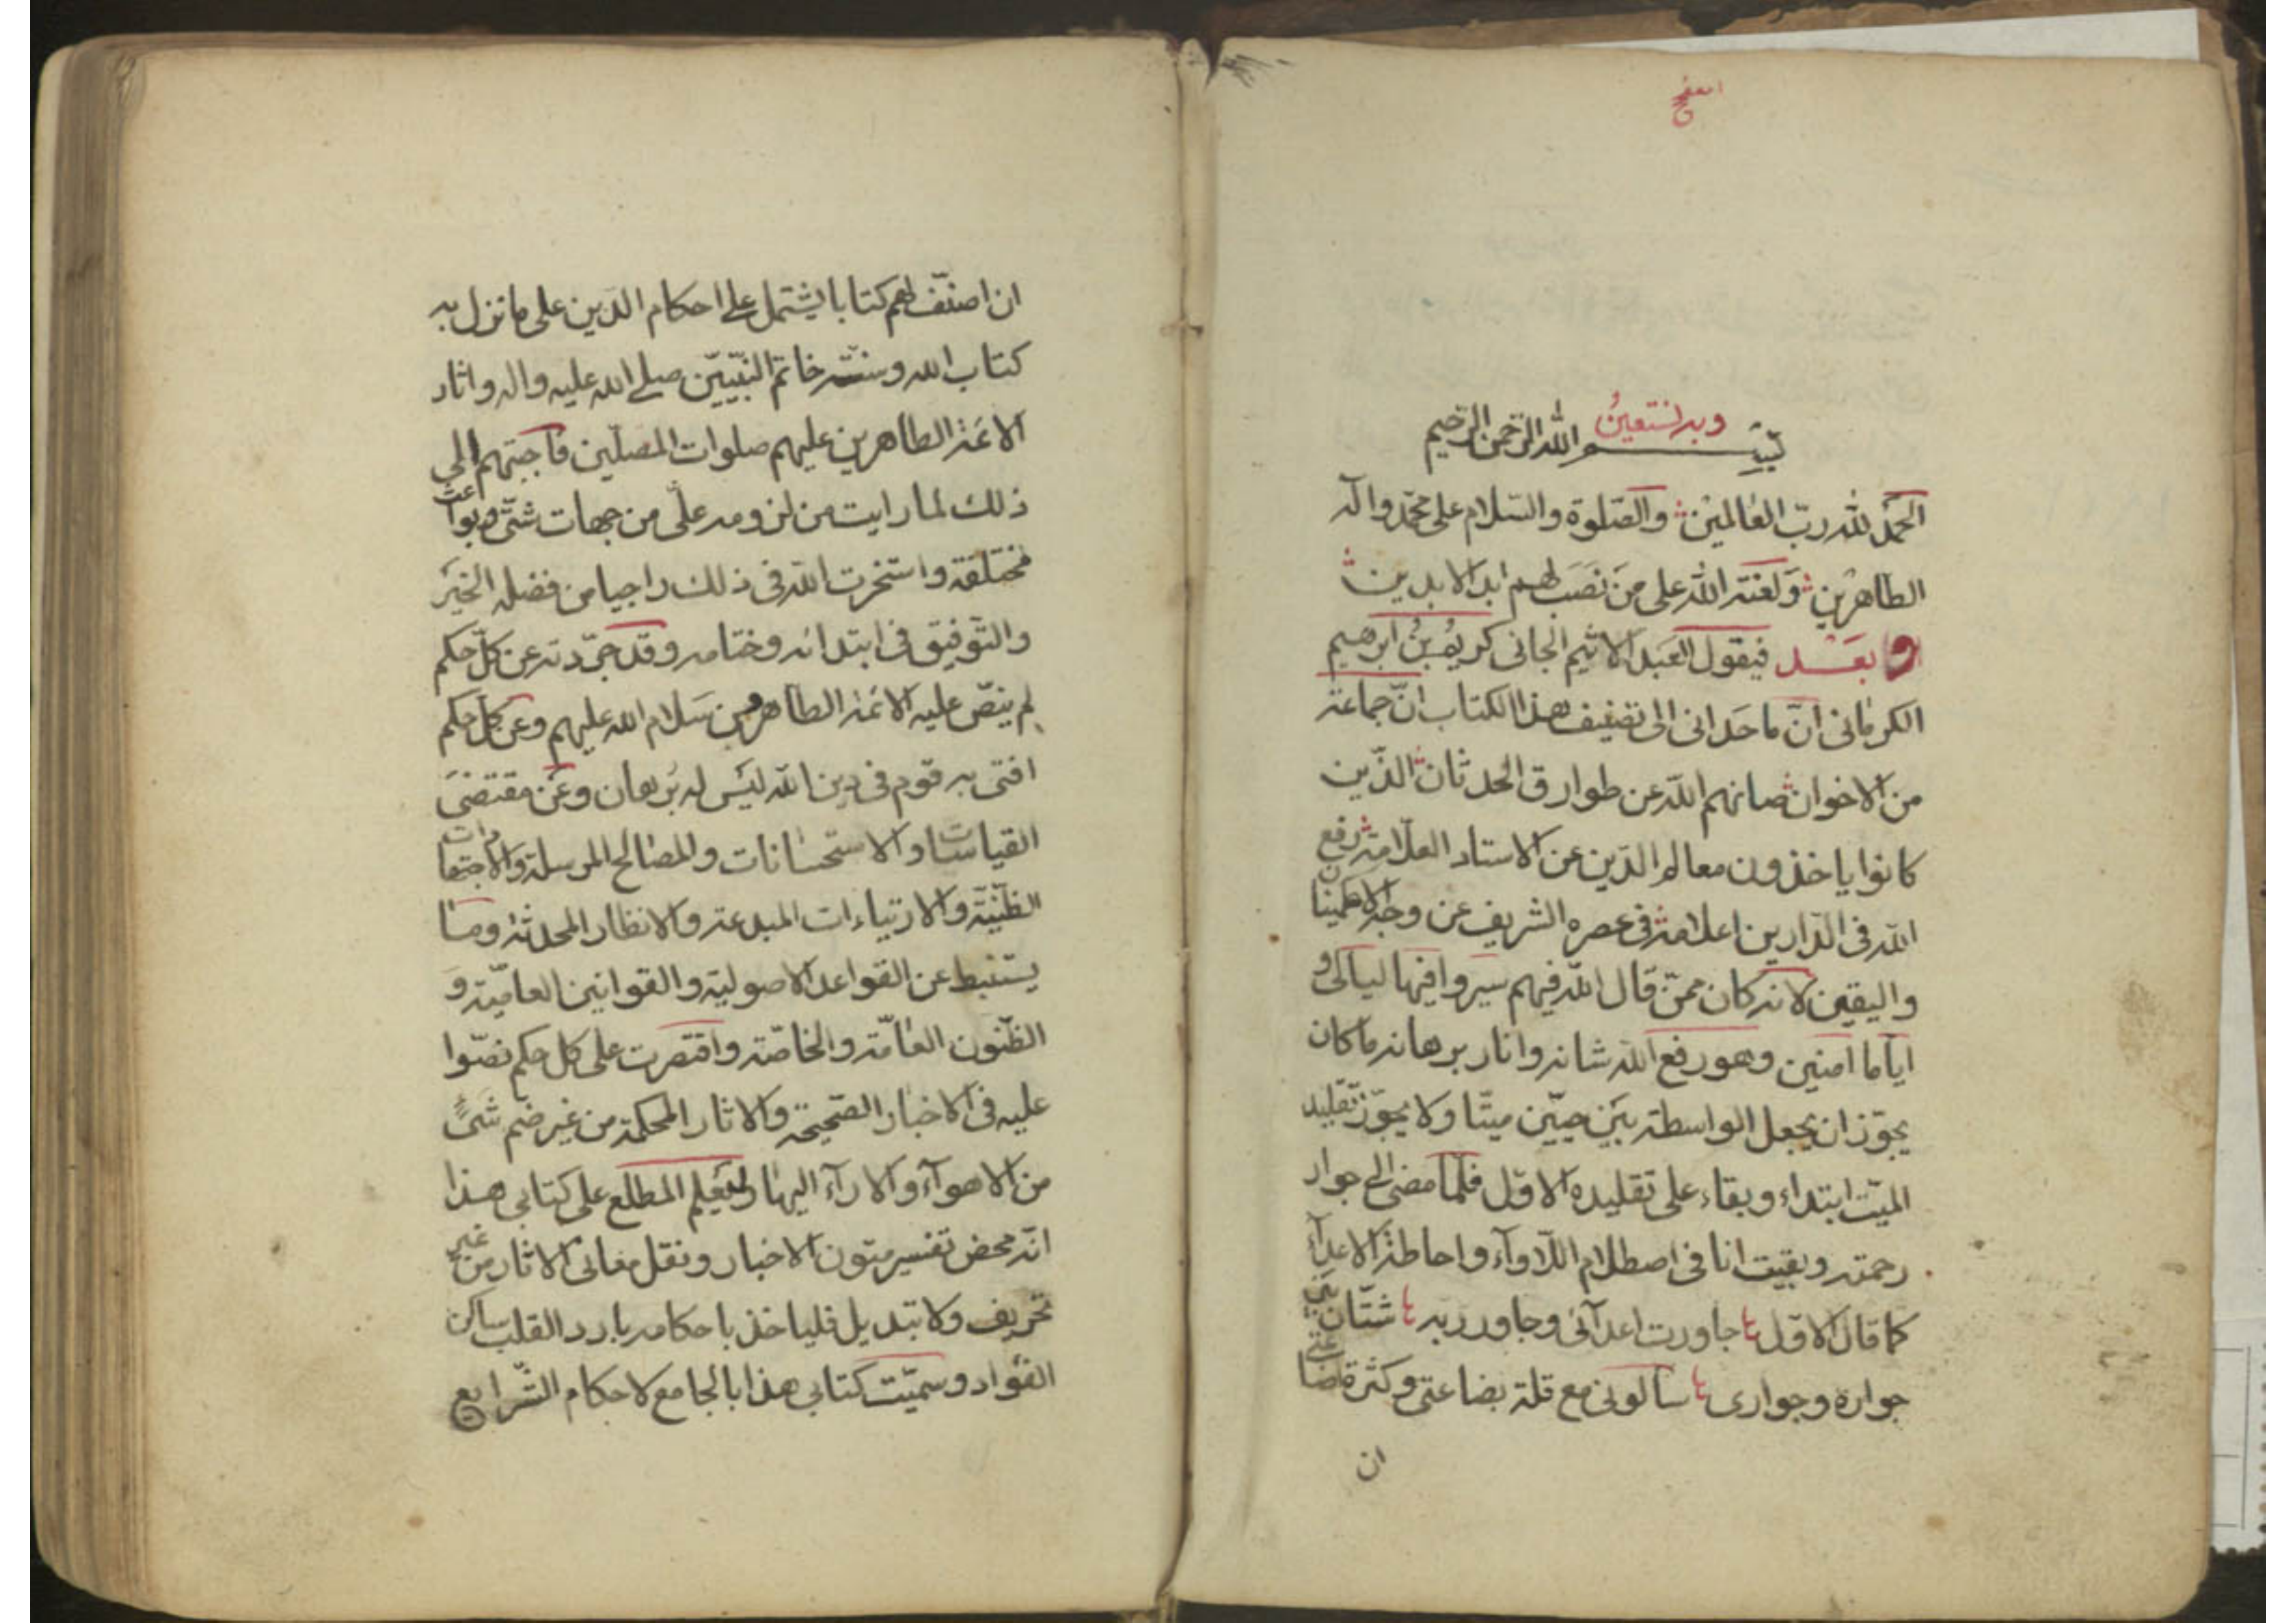 وبه نستعين
بسم الله الرحمن الرحيم
الحمد لله ربّ العالمين والصّلوة والسّلام على محمّد وآله
الطاهرين ولعنة الله على من نصب لهم ابد الابدين
وبعد فيقول العبد الاثيم الجانى كريم بن ابرهيم
الكرمانى انّ ما حدانى الى تصنيف هذا الكتاب انّ جماعة
من الاخوان صانهم الله عن طوارق الحدثان الذّين
كانوا ياخذون معالم الدّين عن الاستاد العلّامة رفع
الله فى الدّارين اعلامه فى عصره الشريف عن وجه الاطمينان
واليقين لانه كان ممّن قال الله فيهم سيروا فيها ليالى و
ايّاما امنين وهو رفع الله شانه وانار برهانه ما كان
يجوّز ان يجعل الواسطة بين حيّين ميتّا ولا يجوّز تقليد
الميّت ابتداء وبقاء على تقليده الاوّل فلمّا مضى الى جوار
رحمته وبقيت انا فى اصطلام اللّاوآء واحاطة الاعدآء
كما قال الاوّل جاورت اعدآئى وجاور ربه شتّان بين
جواره وجوارى سألونى مع قلة بضاعتى وكثرة
ان
ان اصنّف لهم كتابا يشتمل على احكام الدّين على ما نزل به
كتاب الله وسنّة خاتم النّبيّين صلى الله عليه واله واثار
الائمّة الطاهرين عليهم صلوات المصلّين فاجبتهم الى
ذلك لما رايت من لزومه علىّ من جهات شتّى وبواعث
مختلفة واستخرت الله فى ذلك راجيا من فضله الخير
والتّوفيق فى ابتدائه وختامه وقد جرّدته عن كلّ حكم
لم ينصّ عليه الائمّة الطاهرين سلام الله عليهم وعن كلّ حكم
افتى به قوم فى دين الله ليس له برهان وعن مقتضى
القياسات والاستحسانات والمصالح المرسلة والاجتهادات
الظّنيّة والارتياءات المبدعة والانظار المحدثة وما
يستنبط عن القواعد الاصولية والقوانين العاميّة و
الظّنون العامّة والخاصّة واقتصرت على كل حكم نصّوا
عليه فى الاخبار الصّحيحة والاثار المحكمة من غير ضم شىء
من الاهوآء والارآء اليها وليعلم المطلع على كتابى هذا
انّه محض تفسير متون الاخبار ونقل معانى الاثار من غير
تحريف ولا تبديل فلياخذ باحكامه بارد القلب ساكن
الفؤاد وسميّت كتابى هذا بالجامع لاحكام الشّرايع